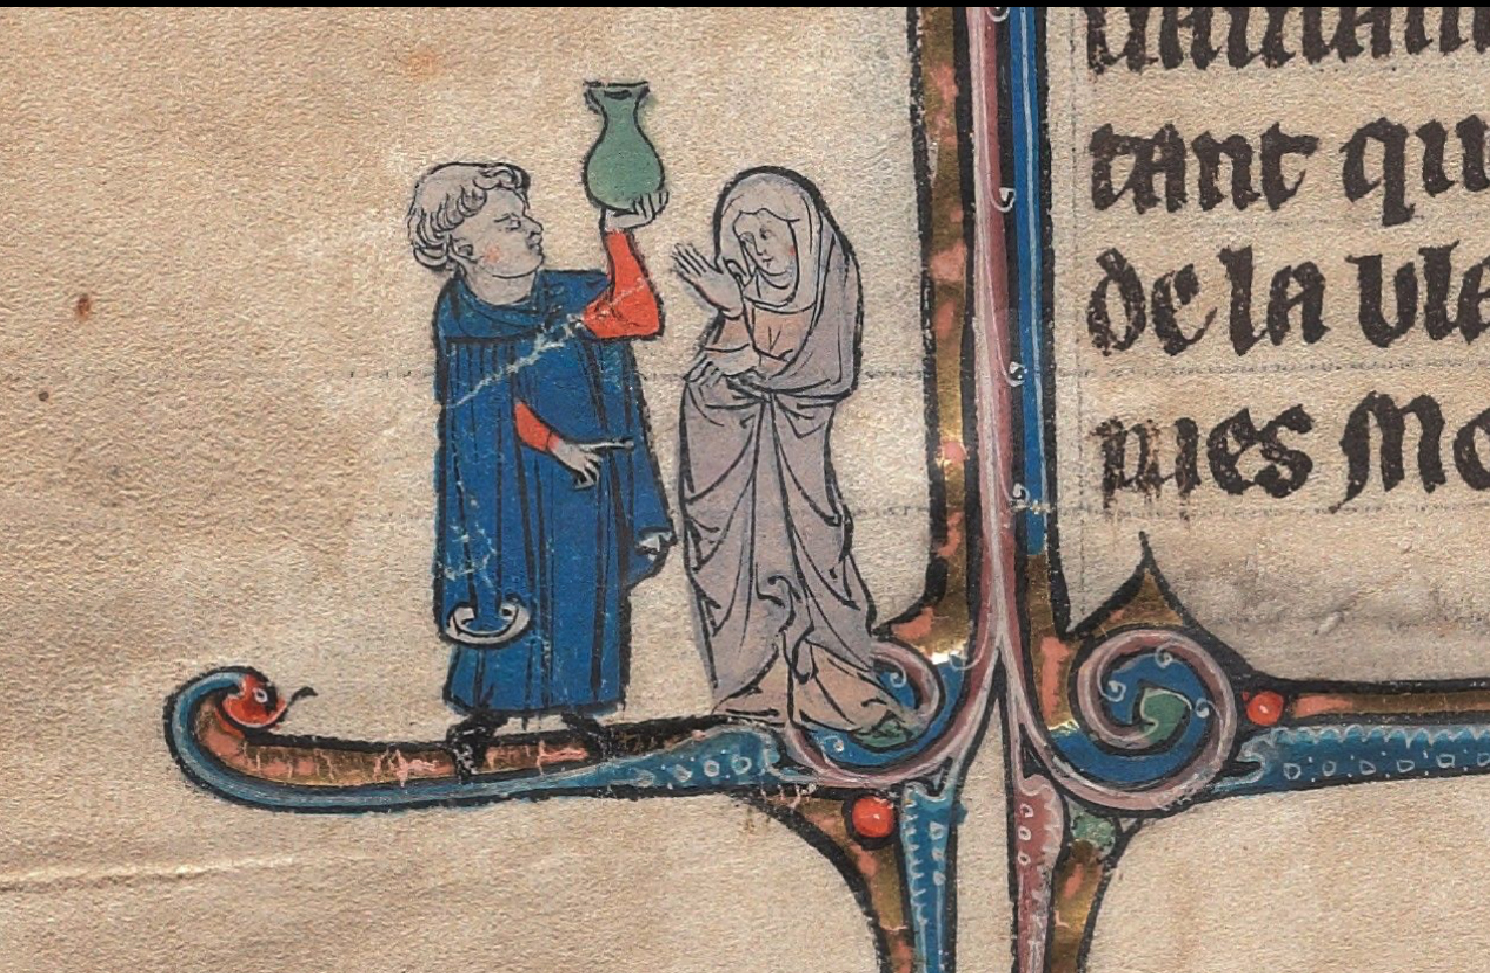 tant qu
de la vle
mes Mo